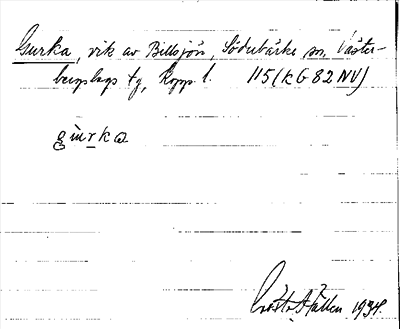 Gurka, vik av Billsjön, Söderbärke sn, Väster-
bergslags tg, Kopp. l. 115 (KG 82 NV)
gùrka
Hällen 1934.